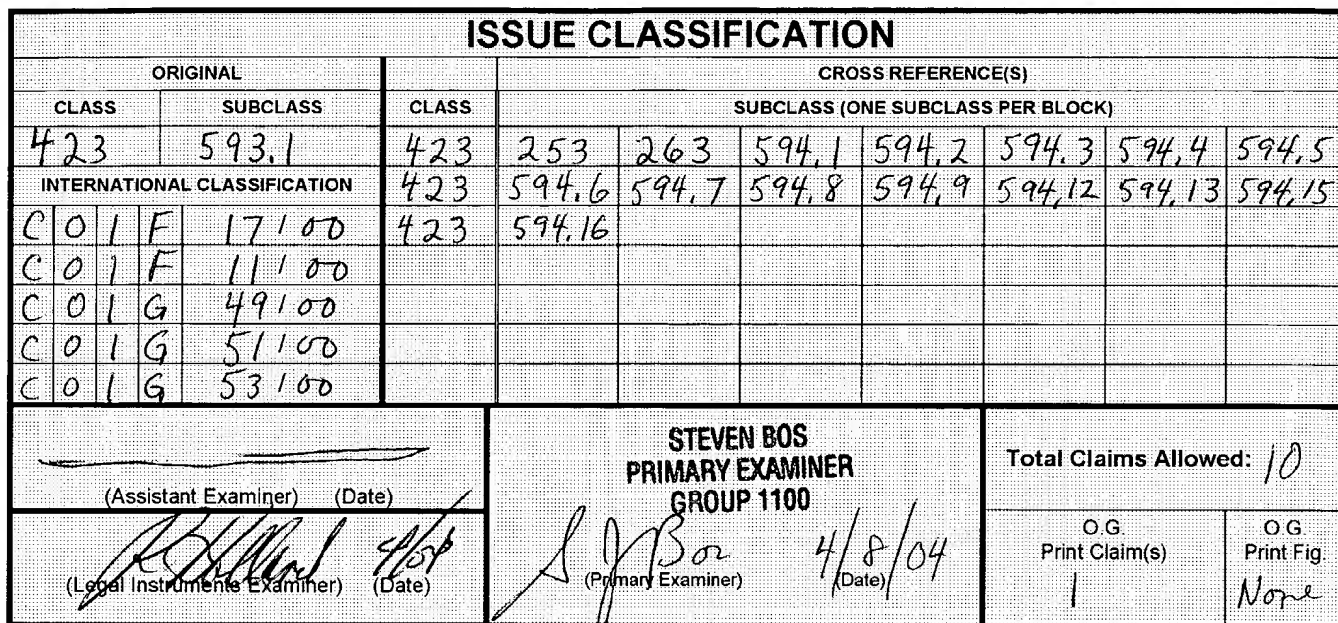 ISSUE CLASSIFICATION
ORIGINAL CROSS REFERENCE(S)
CLASS SUBCLASS CLASS SUBCLASS (ONE SUBCLASS PER BLOCK)
423 593.1 423 253 263 594.1 594.2 594.3 594.4 594.5
INTERNATIONAL CLASSIFICATION 423 594.6 594.7 594.8 594.9 594.12 594.13 594.15
C 0 1 F 17/00 423 594.16
C 0 1 F 11/00
C 0 1 G 49/00
C 0 1 G 51/00
C 0 1 G 53/00
(Assistant Examiner) (Date)
(Legal Instruments Examiner) (Date)
STEVEN BOS
PRIMARY EXAMINER
GROUP 1100
S J Bos 4/8/04
(Primary Examiner) (Date)
Total Claims Allowed: 10
O.G. Print Claim(s)
1
O.G. Print Fig.
None